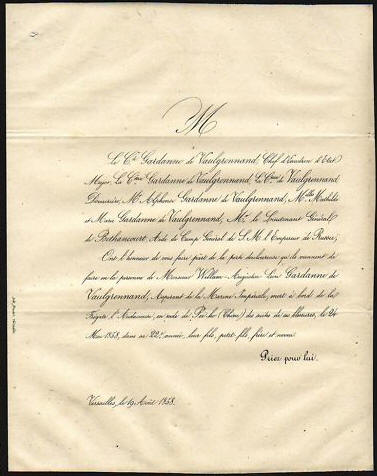 M
Le Cte Gardanne de Vaulgrennand, Chef d'Escadron d'Etat
Major, La Ctesse Gardanne de Vaulgrennand, La Ctesse de Vaulgrennand
Douairière, Mr Alphonse Gardanne de Vaulgrennand, Mlles Mathilde
et Marie Gardanne de Vaulgrennand, Mr le Lieutenant Général
de Bethancourt, Aide de Camp Général de S.M. l'Empereur de Russie;
Ont l'honneur de vous faire part de la perte douloureuse qu'ils viennent de
faire en la personne de Monsieur William Augustin Léon Gardanne de
Vaulgrennand, Aspirant de la Marine Impériale, mort à bord de la
Frégate l'Audacieuse, en rade de Pee-ho (Chine) des suites de ses blessures, le 24
Mai 1858, dans sa 22e année, leur fils, petit-fils, frère et neveu.
Priez pour lui.
Versailles, le 19 Août 1858.